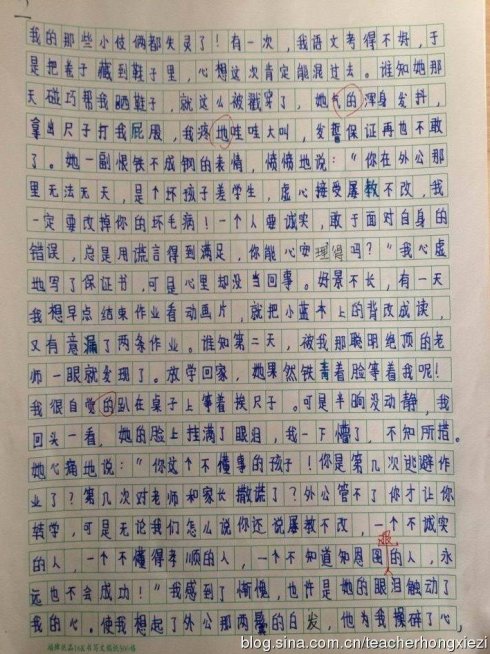 我的那些小伎俩都失灵了！有一次，我语文考得不好，于
是把卷子藏到鞋子里，心想这次肯定能混过去。谁知她那
天碰巧帮我晒鞋子，就这么被戳穿了，她气的浑身发抖，
拿出尺子打我屁股，我疼地哇哇大叫，发誓保证再也不敢
了。她一副恨铁不成钢的表情，愤愤地说：“你在外公那
里无法无天，是个坏孩子差学生，虚心接受屡教不改，我
一定要改掉你的坏毛病！一个人要诚实，敢于面对自身的
错误，总是用谎言得到满足，你能心安理得吗？”我心虚
地写了保证书，可是心里却没当回事。好景不长，有一天
我想早点结束作业看动画片，就把小蓝本上的背改成读，
又有意漏了两条作业。谁知第二天，被我那聪明绝顶的老
师一眼就发现了。放学回家，她果然铁青着脸等着我呢！
我很自觉的趴在桌子上等着挨尺子。可是半晌没动静，我
回头一看，她的脸上挂满了眼泪，我一下懵了，不知所措。
她心痛地说：“你这个不懂事的孩子！你是第几次逃避作
业了？第几次对老师和家长撒谎了？外公管不了你才让你
转学，可是无论我们怎么说你还说屡教不改，一个不诚实
的人，一个不懂得孝顺的人，一个不知道知恩图报的人，永
远也不会成功！”我感到了惭愧，也许是她的眼泪触动了
我的心。使我想起了外公那两鬓的白发，他为我操碎了心，
blog.sina.com.cn/teacherhongxiezi